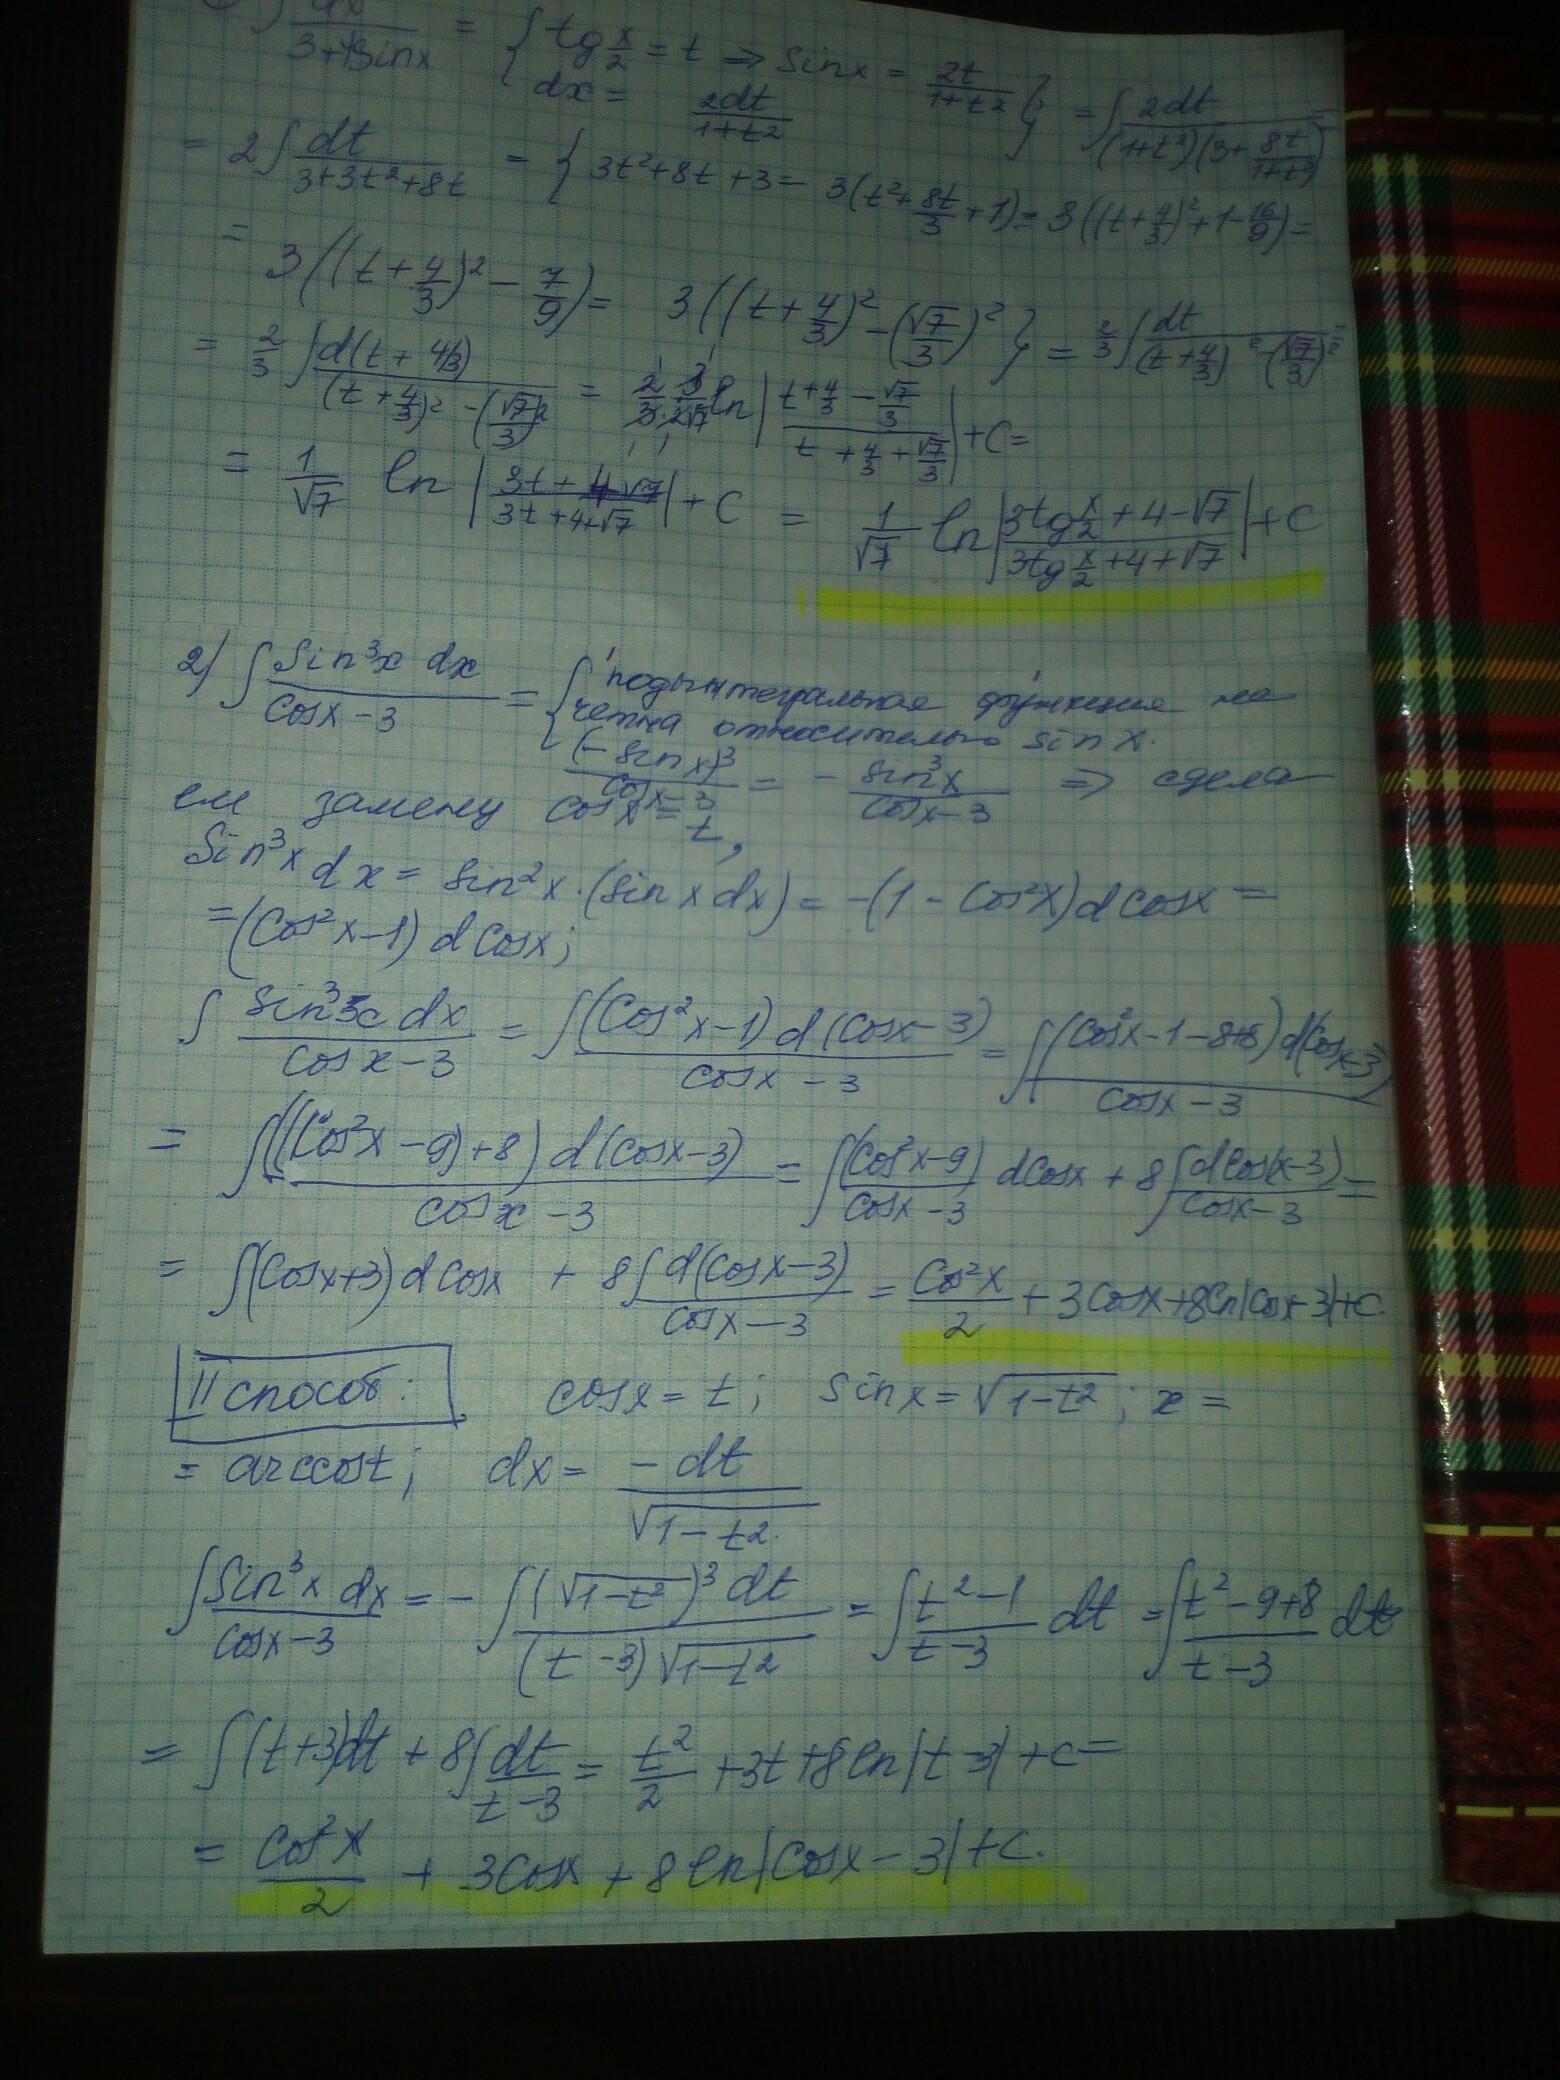 ∫ dx / (3+4sinx) = { tg x/2 = t ⇒ sinx = 2t/(1+t²)
dx = 2dt/(1+t²) } = ∫ 2dt / ((1+t²)(3+ 8t/(1+t²))) =
= 2∫ dt/(3+3t²+8t) = { 3t²+8t+3 = 3(t²+ 8t/3 +1) = 3((t+4/3)²+1-16/9) =
= 3((t+4/3)² - 7/9) = 3((t+4/3)² - (√7/3)²) } = 2/3 ∫ dt/((t+4/3)² - (√7/3)²) =
= 2/3 ∫ d(t+4/3)/((t+4/3)² - (√7/3)²) = 2/3 · 3/(2√7) ln |(t+4/3 - √7/3)/(t+4/3+√7/3)| + C =
= 1/√7 ln |(3t+4-√7)/(3t+4+√7)| + C = 1/√7 ln |(3tg x/2 +4-√7)/(3tg x/2 +4+√7)| + C
2) ∫ sin³x dx/(cosx-3) = { подынтегральная функция не
четна относительно sin x.
(-sinx)³/(cosx-3) = - sin³x/(cosx-3) ⇒ сдела
ем замену cosx = t,
Sin³x dx = sin²x·(sin x dx) = -(1 - cos²x) d cosx =
= (cos²x-1) d cosx;
∫ sin³x dx/(cosx-3) = ∫ (cos²x-1) d(cosx-3)/(cosx-3) = ∫ (cos²x-1-8+8) d(cosx-3)/(cosx-3)
= ∫ ((cos²x-9)+8) d(cosx-3)/(cosx-3) = ∫ (cos²x-9)/(cosx-3) dcosx + 8∫ dcos(x-3)/(cosx-3) =
= ∫(cosx+3) d cosx + 8∫ d(cosx-3)/(cosx-3) = cos²x/2 + 3cosx+8ln|cosx-3|+C.
II способ: cosx = t; sinx = √(1-t²); x =
= arccost; dx = -dt/√(1-t²).
∫ sin³x dx/(cosx-3) = - ∫ (√(1-t²))³ dt/((t-3)√(1-t²)) = ∫ (t²-1)/(t-3) dt = ∫ (t²-9+8)/(t-3) dt
= ∫(t+3)dt + 8∫ dt/(t-3) = t²/2 +3t+8ln|t-3|+C =
= cos²x/2 + 3cosx + 8ln|cosx-3|+C.